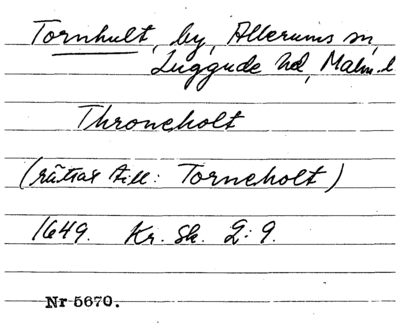 Tornhult, by, Allerums sn,
Luggude hd, Malm. l
Throneholt
(rättas till: Torneholt)
1649. Kr. Sk. Q: 9.
Nr 5670.